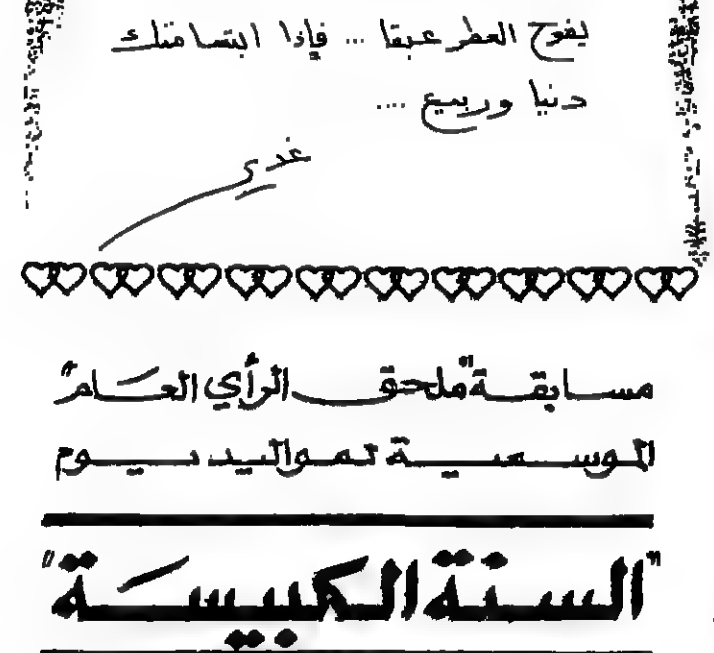 يفوح العطر عبقا ... فإذا ابتسامتك
دنيا وربيع ....
غدي
مسابقة "ملحق الرأي العام"
الموسمية لمواليد يوم
"السنة الكبيسة"